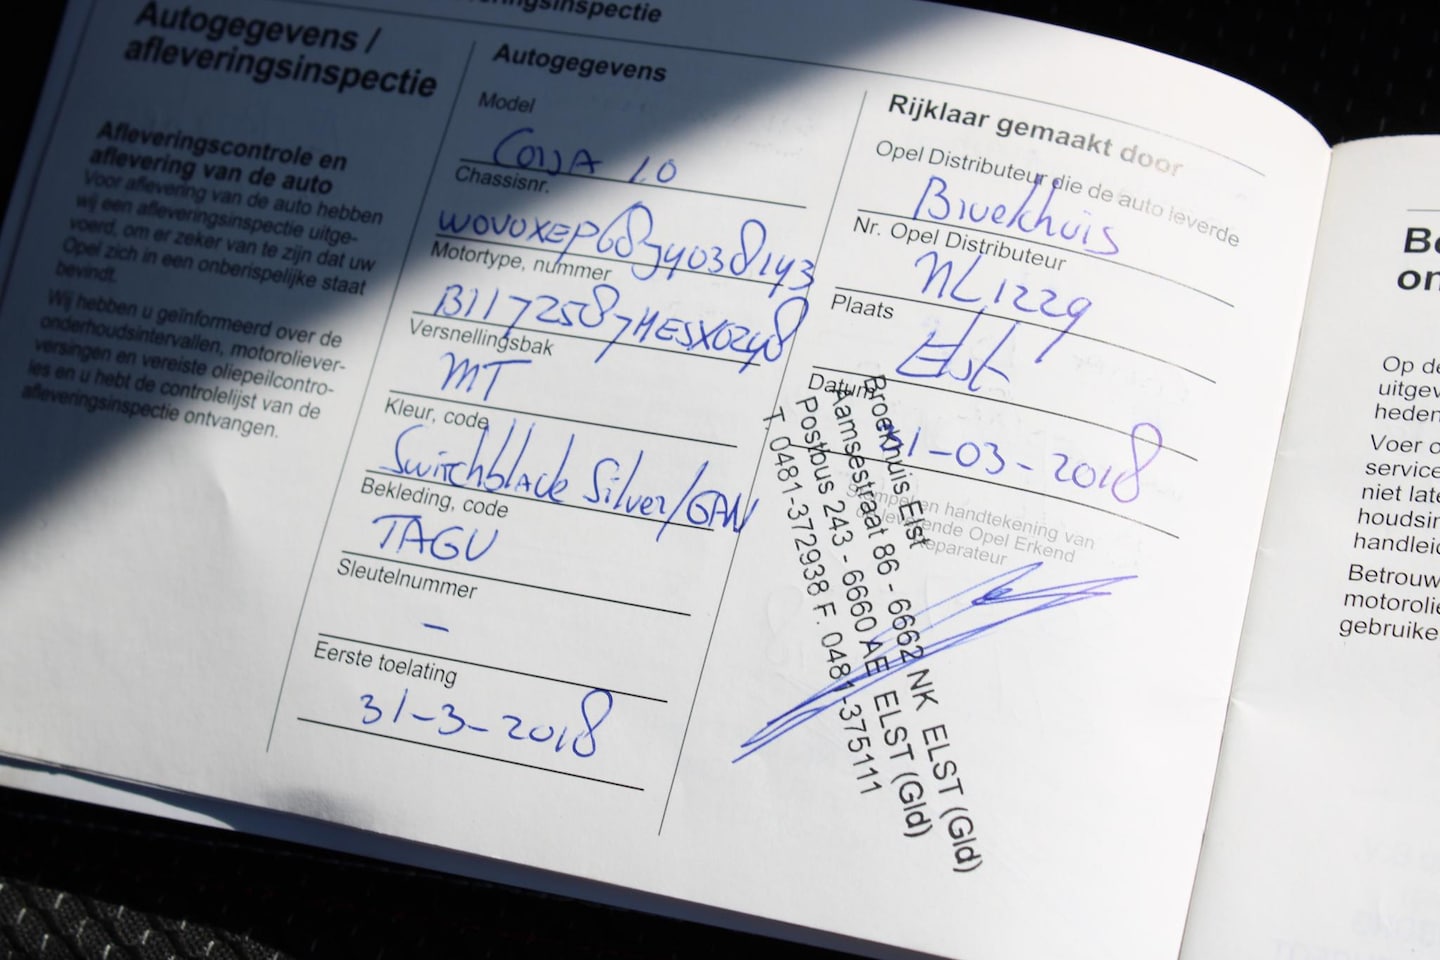 Autogegevens /
afleveringsinspectie
Afleveringscontrole en
aflevering van de auto
Voor aflevering van de auto hebben
wij een afleveringsinspectie uitge-
voerd, om er zeker van te zijn dat uw
Opel zich in een onberispelijke staat
bevindt.
Wij hebben u geïnformeerd over de
onderhoudsintervallen, motoroliever-
versingen en vereiste oliepeilcontro-
les en u hebt de controlelijst van de
afleveringsinspectie ontvangen.
Autogegevens
Model
Corsa 1.0
Chassisnr.
Motortype, nummer
Versnellingsbak
MT
Kleur, code
Switchblade Silver/GAN
Bekleding, code
TAGU
Sleutelnummer
–
Eerste toelating
31-3-2018
Rijklaar gemaakt door
Opel Distributeur die de auto leverde
Broekhuis
Nr. Opel Distributeur
NL1229
Plaats
Elst
Datum
31-03-2018
Stempel en handtekening van
Opel Erkend
Reparateur
Broekhuis Elst
Aamsestraat 86 - 6662 NK ELST (Gld)
Postbus 243 - 6660 AE ELST (Gld)
T. 0481-372938 F. 0481-375111
Op de
uitgev
heden
Voer o
service
niet late
houdsin
handleid
Betrouw
motorolie
gebruike